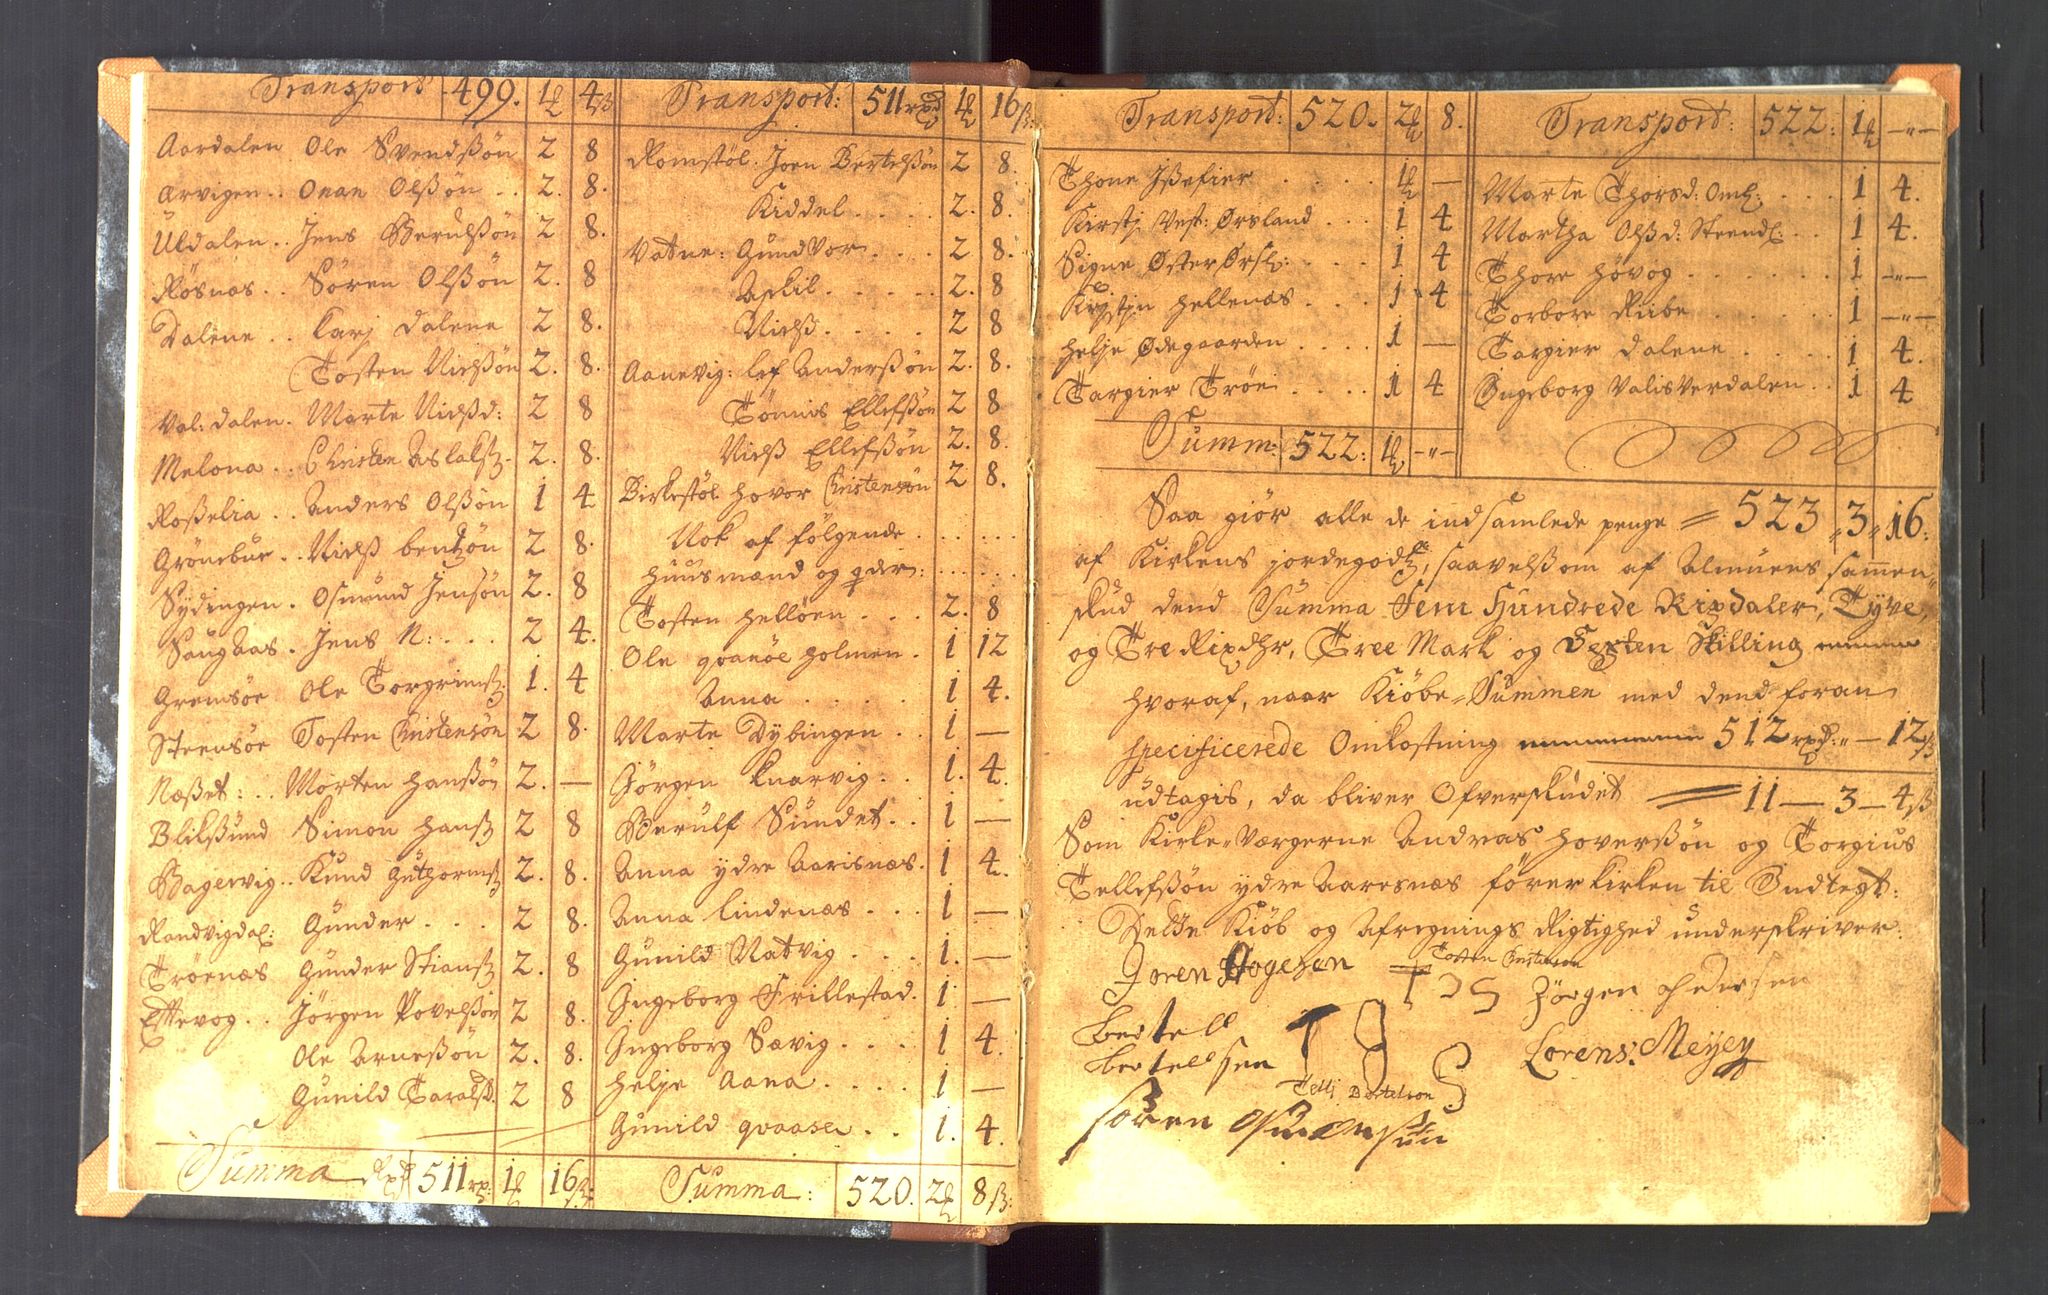 Transport 499. 1 4ß
Aardalen Ole Svendßön 2 8
Ærvigen .. Onan Olßön .. 2. 8.
Uldalen .. Jens Berulßön 2 8.
Røsnæs .. Sören Olßön 2. 8
Dalene .. Karj Dalene 2 8.
Tosten Nielßön 2. 8.
Val: dalen. Marte Nielßd: 2 8
Melona .. Christen Aslaks. 2. 8.
Roßelia .. Anders Olßön 1 4
Grönebur .. Nielß bentzön 2 8.
Sydingen . Osmund Jensön 2. 8
Saugaas . Jens N: ... 2 4.
Gremsöe Ole Torgrims 1. 4
Steensöe Tosten Christensön 2 8.
Næßet: .. Morten hanßön 2. —
Blikßund Simon hans 2 8
Bagevig .. Knud Guthorms 2. 8.
Randvigdal: Gunder ... 2 8.
Tröenæs Gunder Stians 2. 8
Ettevog .. Jörgen Povelßön 2 8.
Ole Arneßön 2. 8.
Gunild Taralsd. 2 8
Summa Rxd 511 rx: 1 16ß:
Transport: 511 rxd 1 16ß:
Romstöl. Joen Bertelßön 2 8.
Kiddel .... 2. 8.
Vatne: Gundvor ... 2 8.
Aslil ..... 2. 8
Nielß .... 2 8
Aanevig: lef Anderßön 2. 8.
Tönnis Ellefßön 2 8
Nielß Ellefßön 2. 8.
Birkestöl hovor Christensön 2 8.
Nok af fölgende . ... ...
huusmænd og qder: ... ...
Tosten hellöen ... 2. 8
Ole qvanöe holmen . 1 12
Anna ..... 1 4.
Marte Dybingen .. 1 —
Jörgen Knarvig .. 1. 4.
Berulf Sundet .. 1 —
Anna ydre Aarisnæs . 1 4.
Anna lindenæs ... 1 —
Gunild Natvig ... 1. —
Ingeborg Frillestad. 1 —
Ingeborg Sævig ... 1 4.
helje Aana .... 1 —
Gunild qvaase .. 1. 4.
Summa: 520. 2 8ß:
Transport: 520. 2 8.
Thone Ißefier .... 1 —
Kirstj Vest: Ørsland ... 1 4
Signe Øster Ørsl: .... 1 4
Kirstjn hellenæs ... 1 4
helje Ødegaarden .... 1 —
Targier Tröe ..... 1 4
Summ: 522: 1 -"-
Transport: 522: 1 -"-
Marte Thorsd: Oml: ... 1 4.
Martha Olßd: Steendl: .. 1 4.
Thore hövog ...... 1 -"-
Torbore Riibe ..... 1 -"-
Targier Dalene .... 1 4.
Ingeborg Valisverdalen .. 1 4
Saa giör alle de indsamlede penge = 523 "3" 16.
af Kirkens jordegods, saavelßom af Almuens sammen=
skud dend Summa Fem Hundrede Rixdaler, Tyve,
og Tre Rixdlr, Tree Mark og Sexten Skilling
hvoraf, naar Kiöbe=Summen med dend foran
specificerede Omkostning 512 rxd: " — 12ß
udtagis, da bliver Ofverskudet = 11 — 3 — 4ß
Som Kirke=Værgerne Andras hoverßön og Torgius
Tellefßön ydre Aaresnæs förer kirken til Indtegt:
Dette Kiöb og Afregnings Rigtighed underskriver:
Joren Aagesen
Tosten Christenson
Jörgen Pedersen
Bertell
Bertellsen
T B S
Tellj Bertelson
Lorens: Meyer
sören Osmonsün